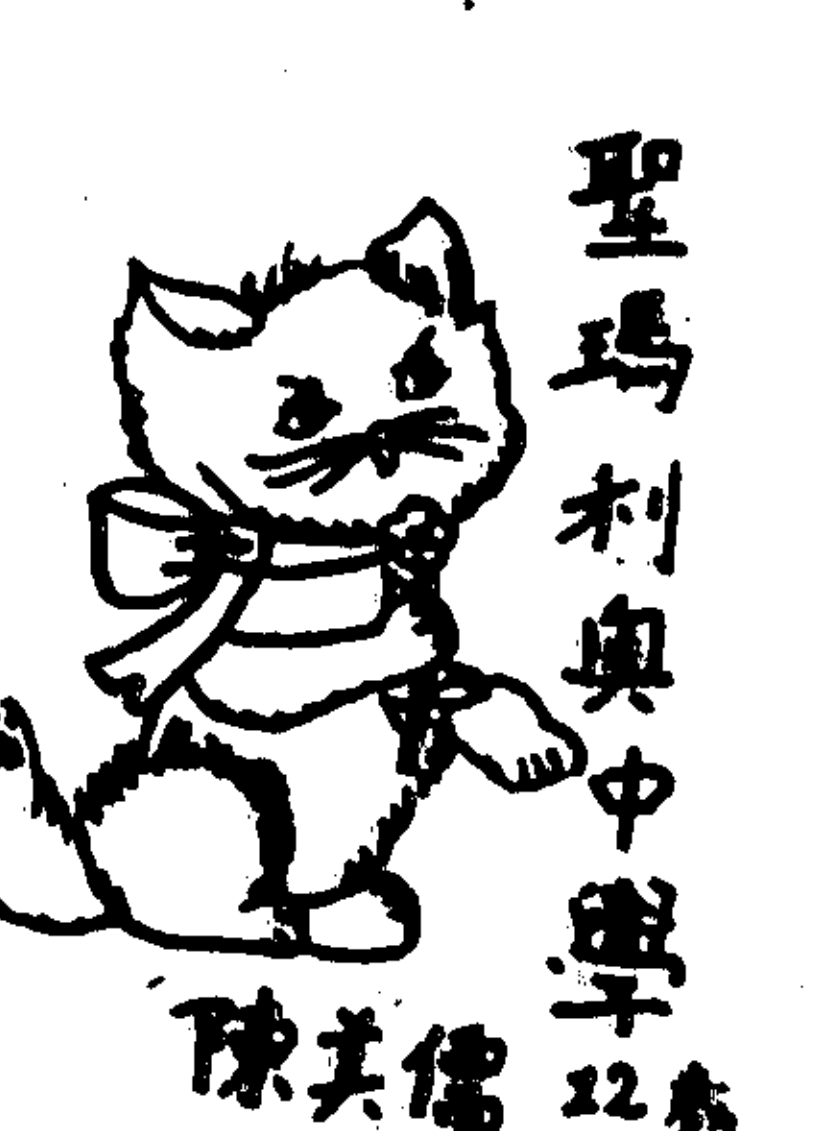 聖瑪利奧中學
陳美儒 12歲